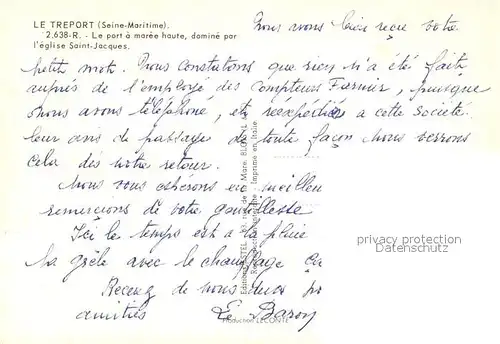 LE TREPORT (Seine-Maritime).
2.638-R. - Le port à marée haute, dominé par
l'église Saint-Jacques.
Nous avons bien reçu votre
petit mot. Nous constatons que rien n'a été fait
auprès de l'employé des compteurs Farnier, puisque
nous avons téléphoné, et réexpédié a cette Société
leur avis de passage de toute façon nous verrons
cela dès notre retour.
Nous vous
remercions de votre gentillesse
Ici le temps est à la pluie
la grêle avec le chauffage ça
Recevez de nous deux
amitiés Le Baron
Imprimé en Italie
Production LECONTE
privacy protection
watermark